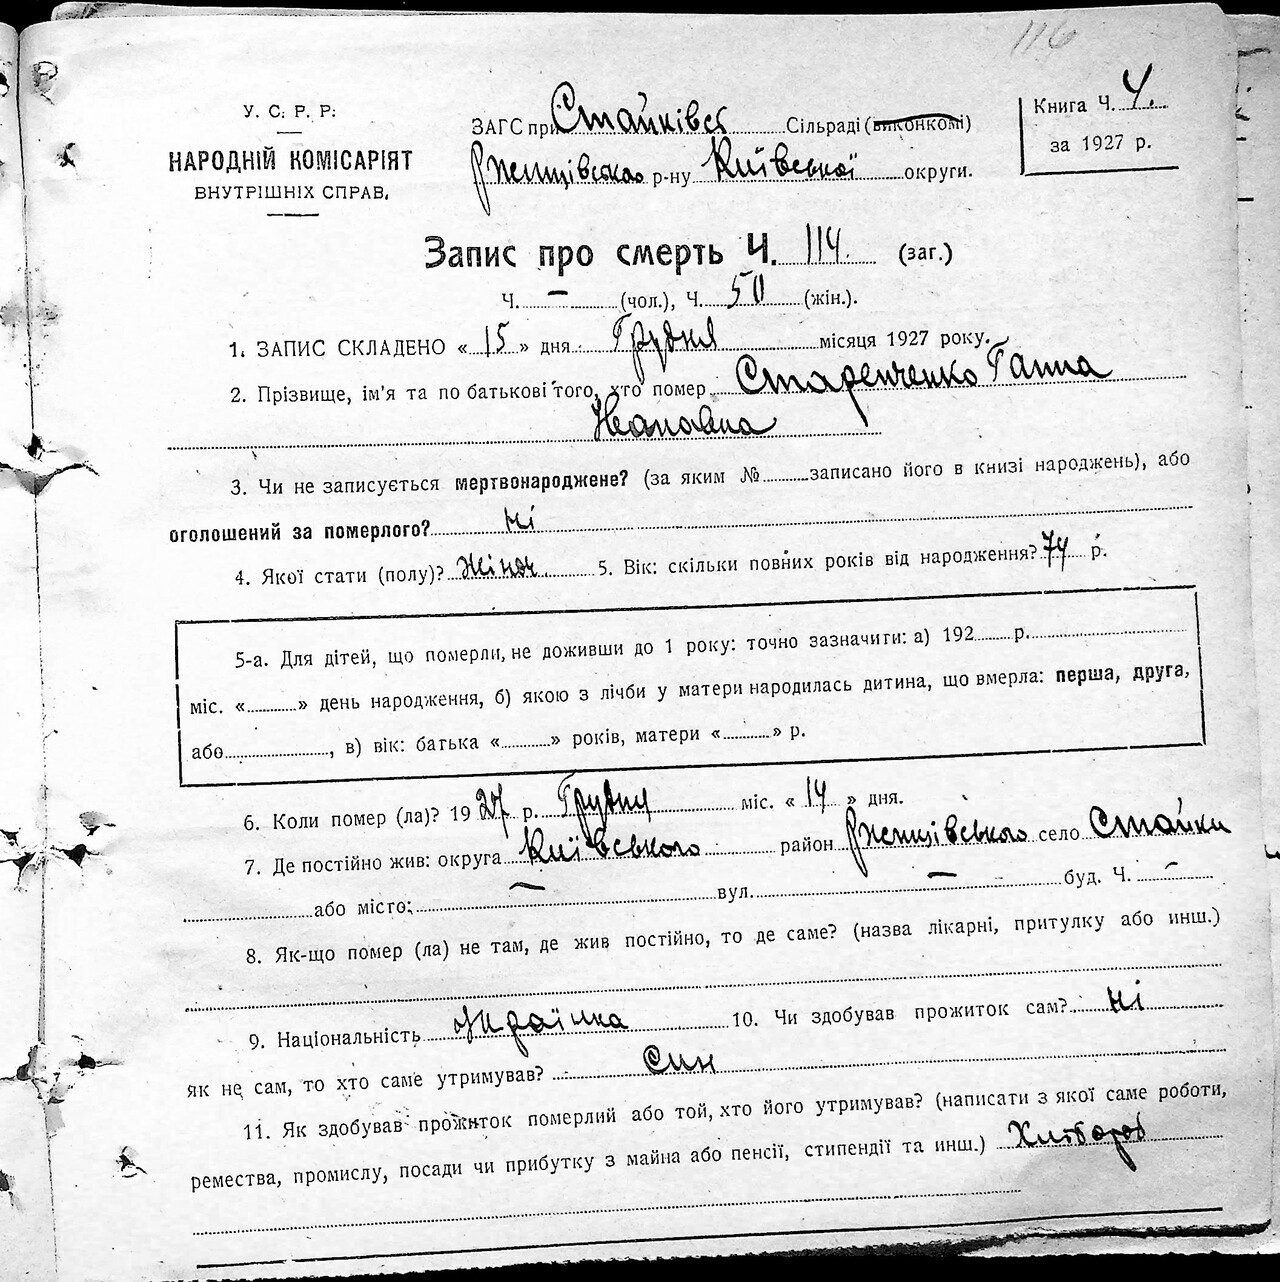 116
У. С. Р. Р.
НАРОДНІЙ КОМІСАРІЯТ
ВНУТРІШНІХ СПРАВ.
ЗАГС при Стайківс Сільраді (виконкомі)
Ржищівського р-ну Київської округи.
Книга Ч. 4.
за 1927 р.
Запис про смерть Ч. 114. (заг.)
Ч. — (чол.), Ч. 50 (жін.).
1. ЗАПИС СКЛАДЕНО «15» дня Грудня місяця 1927 року.
2. Прізвище, ім'я та по батькові того, хто помер Старенченко Ганна
Івановна
3. Чи не записується мертвонароджене? (за яким № записано його в книзі народжень), або
оголошений за померлого? Ні
4. Якої стати (полу)? Жіноч. 5. Вік: скільки повних років від народження? 74 р.
5-а. Для дітей, що померли, не доживши до 1 року: точно зазначити: а) 192 р.
міс. « » день народження, б) якою з лічби у матери народилась дитина, що вмерла: перша, друга,
або , в) вік: батька « » років, матери « » р.
6. Коли помер (ла)? 1927 р. Грудня міс. «14» дня.
7. Де постійно жив: округа Київського район Ржищівського село Стайки
або місто: — вул. — буд. Ч. —
8. Як-що помер (ла) не там, де жив постійно, то де саме? (назва лікарні, притулку або инш.)
9. Національність Українка 10. Чи здобував прожиток сам? Ні
як не сам, то хто саме утримував? Син
11. Як здобував прожиток померлий або той, хто його утримував? (написати з якої саме роботи,
ремества, промислу, посади чи прибутку з майна або пенсії, стипендії та инш.) Хлібороб